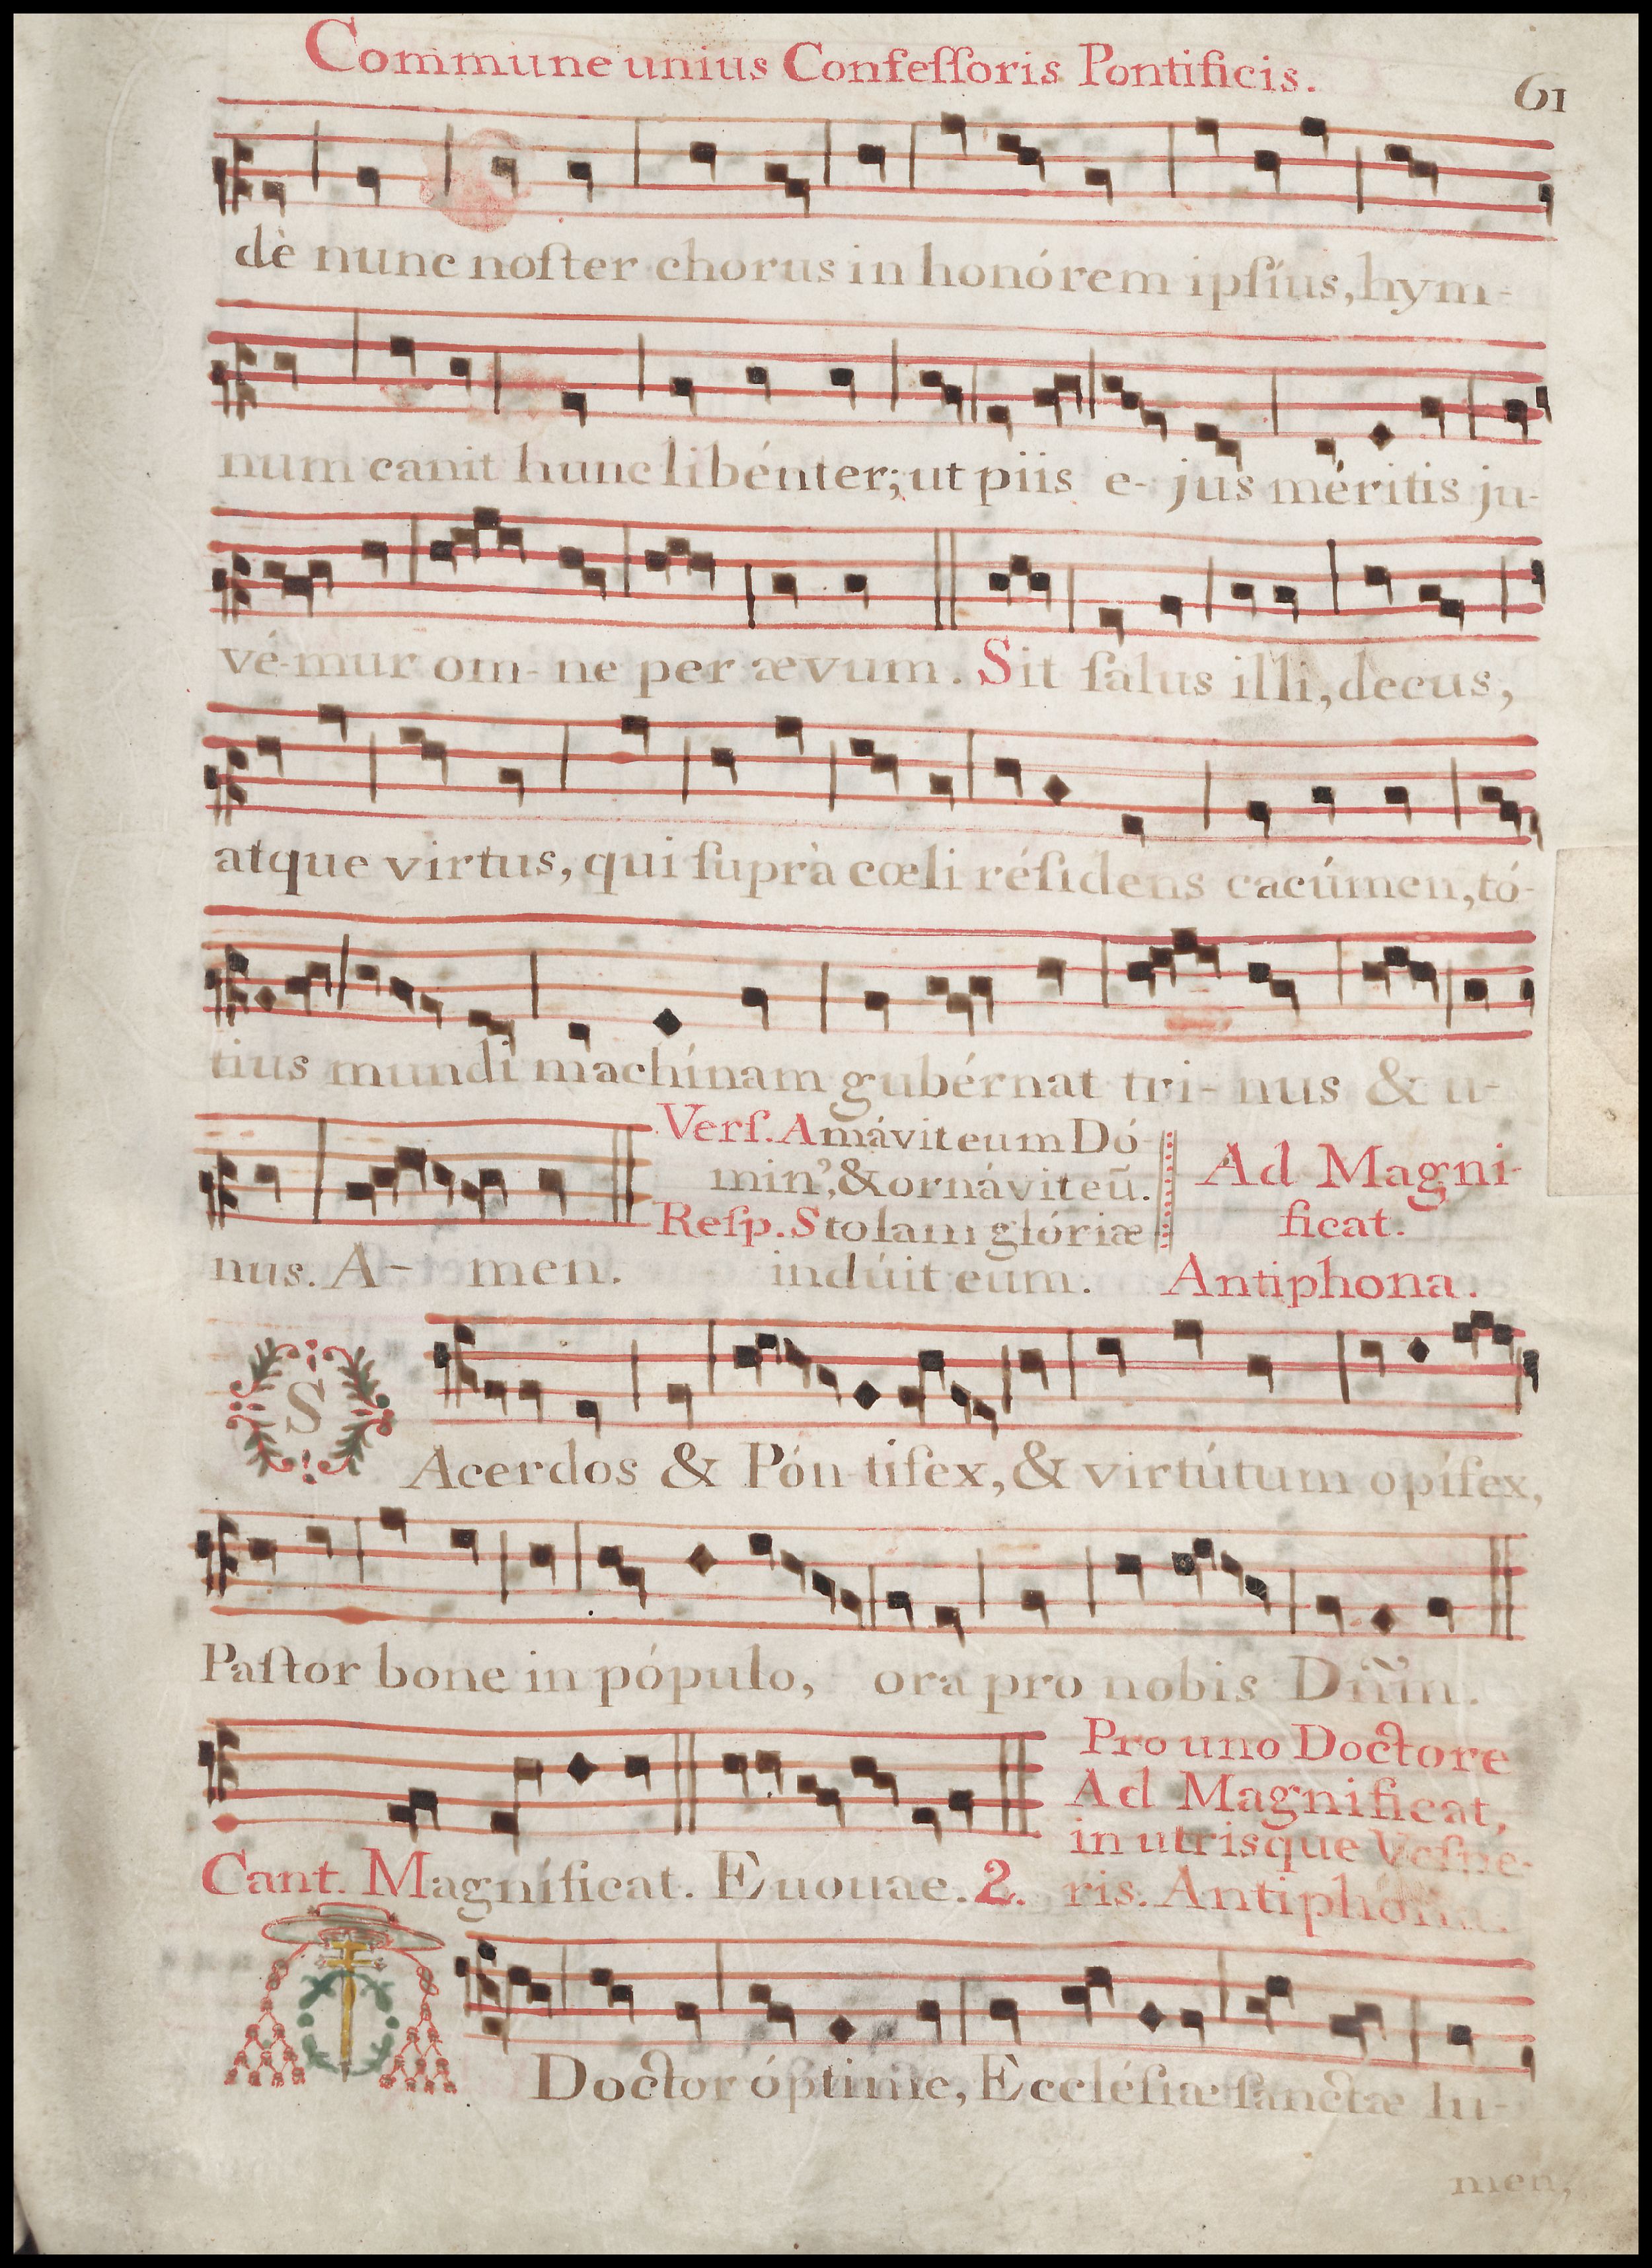 Commune unius Confeſſoris Pontificis.
61
dè nunc noſter chorus in honórem ipſíus, hym-
num canit hunc libénter; ut piis e- jus méritis ju-
vé-mur om- ne per ævum. Sit ſalus illi, decus,
atque virtus, qui ſuprà cœli réſidens cacúmen, tó-
tius mundi machínam gubérnat tri- nus & u-
Verſ. Amávit eum Dó
min', & ornávit eū.
Reſp. Stolam glóriæ
indúit eum.
Ad Magni-
ficat.
Antiphona.
nus. A- men.
SAcerdos & Pón tifex, & virtútum opífex,
Paſtor bone in pópulo, ora pro nobis Dn̄m.
Pro uno Doctore
Ad Magnificat,
in utrisque Veſpe-
ris. Antiphona.
Cant. Magníficat. Euouae. 2.
Doctor óptime, Eccléſiæ ſanctæ lu-
men,